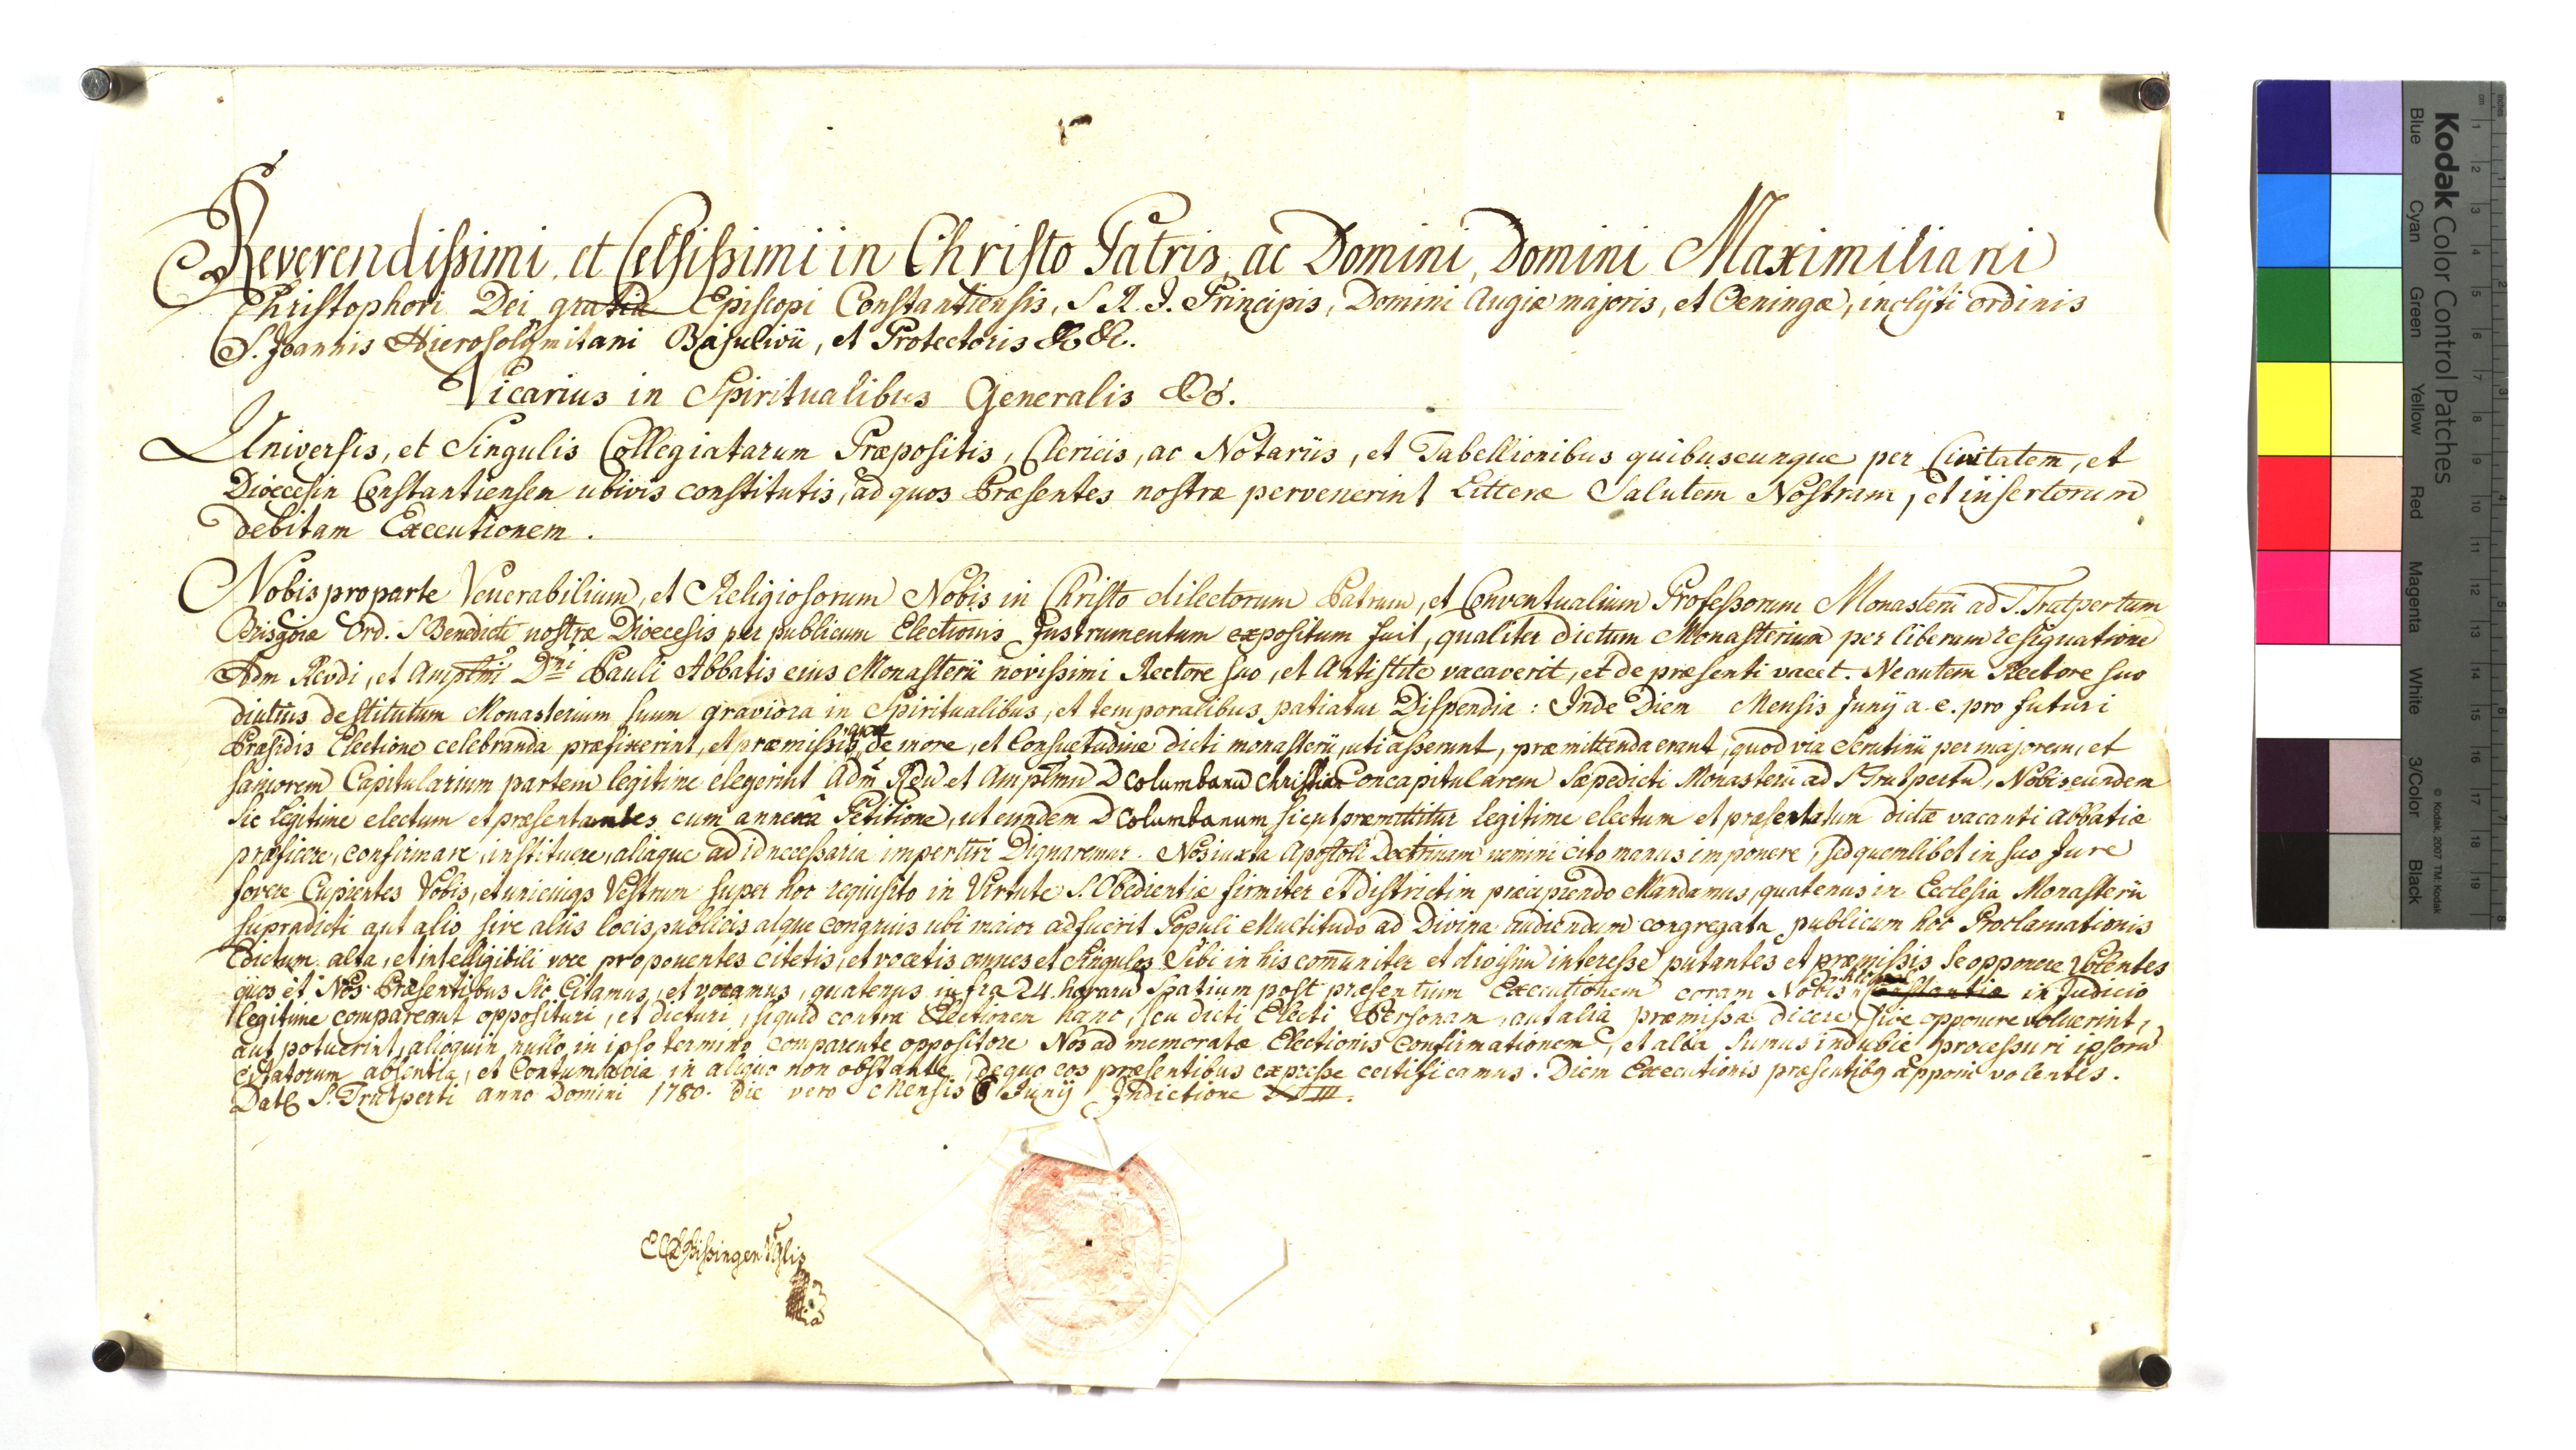 Reverendissimi et Celsissimi in Christo Patris, ac Domini, Domini Maximiliani
Christophori Dei gratia Episcopi Constantiensis, S. R. I. Principis, Domini Augiæ majoris, et Oeningæ, inclyti ordinis
S. Joannis Hierosolymitani Bajulivii, et Protectoris &c &c.
Vicarius in Spiritualibus Generalis &c.
Universis, et Singulis Collegiatarum Præpositis, Clericis, ac Notariis, et Tabellionibus quibuscunque per Civitatem, et
Dioecesin Constantiensem ubivis constitutis, ad quos Præsentes nostræ pervenerint Litteræ Salutem Nostram, et insertorum
debitam Executionem.
Nobis pro parte Venerabilium, et Religiosorum Nobis in Christo dilectorum Patrum, et Conventualium Professorum Monasterii ad S. Trutpertum
Brisgoiæ Ord. S Benedicti nostræ Dioecesis per publicum Electionis Instrumentum expositum fuit, qualiter dictum Monasterium per liberam resignatione
Adm Revdi, et Amplmi Dni Pauli Abbatis ejus Monasterii novissimi Rectore suo, et Antistite vacaverit, et de præsenti vacet. Ne autem Rectore suo
diutius destitutum Monasterium suum graviora in Spiritualibus, et temporalibus patiatur Dispendia: Inde Diem Mensis Junij a. c. pro futuri
Præsidis Electione celebranda præfixerint, et præmissis, quæ de more, et Consuetudine dicti monasterii, uti asserunt, præmittenda erant, quod via Scrutinii per majorem, et
saniorem Capitularium partem legitime elegerint Adm Rdu et Amplmu D Columbanu Christian Concapitularem sæpedicti Monasterii ad S. Trutpertu, Nobis eundem
sic legitime electum et præsentantes cum annexa Petitione, ut eundem D Columbanum sicut præmittitur legitime electum et præsentatum dictæ vacanti Abbatiæ
præficere, confirmare, instituere, aliaque ad id necessaria impertiri Dignaremur. Nos iuxta Apostoli Doctrinam nemini cito manus imponere, sed quemlibet in suo Jure
fovere Cupientes Vobis, et unicuiqs Vestrum super hoc requisito in Virtute S. Obedientiæ firmiter et districtim præcipiendo Mandamus, quatenus in Ecclesia Monasterii
supradicti aut alio sive aliis locis publicis atque congruis ubi maior adfuerit Populi Multitudo ad Divina audiendum congregata publicum hoc Proclamationis
Edictum alta, et intelligibili voce proponentes citetis, et vocetis omnes et singulos Sibi in his comuniter et divisim interesse putantes et præmissis se opponere volentes
quos et Nos Præsentibus sic Citamus, et vocamus, quatenus infra 24 horaru Spatium post præsentium Executionem coram Nobis Constantiæ in Judicio
legitime compareant opposituri, et dicturi, siquid contra Electionem hanc, seu dicti Electi Personam, aut alia præmissa dicere, sive opponere voluerint,
aut potuerint, alioquin nullo in ipso termino comparente oppositore Nos ad memoratæ Electionis Confirmationem, et alia sumus indubie processuri ipsoru
citatorum absentia, et Contumacia in aliquo non obstante, de quo eos præsentibus expresse certificamus. Diem Executionis præsentibq apponi volentes.
Datæ S. Trutperti anno Domini 1780. die vero Mensis 6 Junij Indictione XIII.
Kodak Color Control Patches
© Kodak, 2007 TM: Kodak
Blue Cyan Green Yellow Red Magenta White 3/Color Black
cm 1 2 3 4 5 6 7 8 9 10 11 12 13 14 15 16 17 18 19
inches 1 2 3 4 5 6 7 8